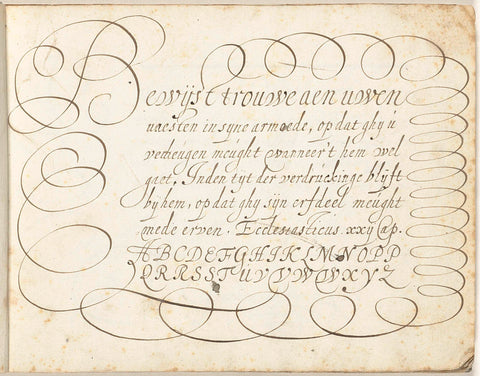 Bewijst trouwe aen uwen
naesten in syne armoede, op dat ghy u
verheugen meught wanneer't hem wel
gaet. In den tyt der verdruckinge blyft
by hem, op dat ghy syn erfdeel meught
mede erven. Ecclesiasticus. xxij Cap.
ABCDEFGHIKLMNOPP
QRRSSTUVVWWXYZ